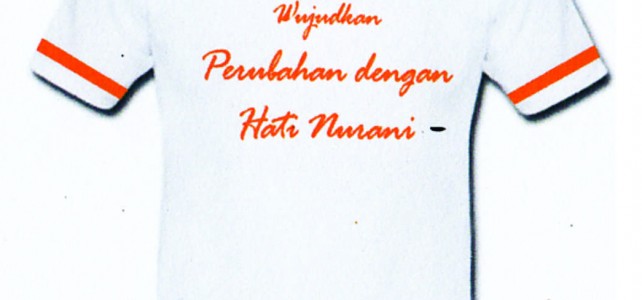 Wujudkan
Perubahan dengan
Hati Nurani